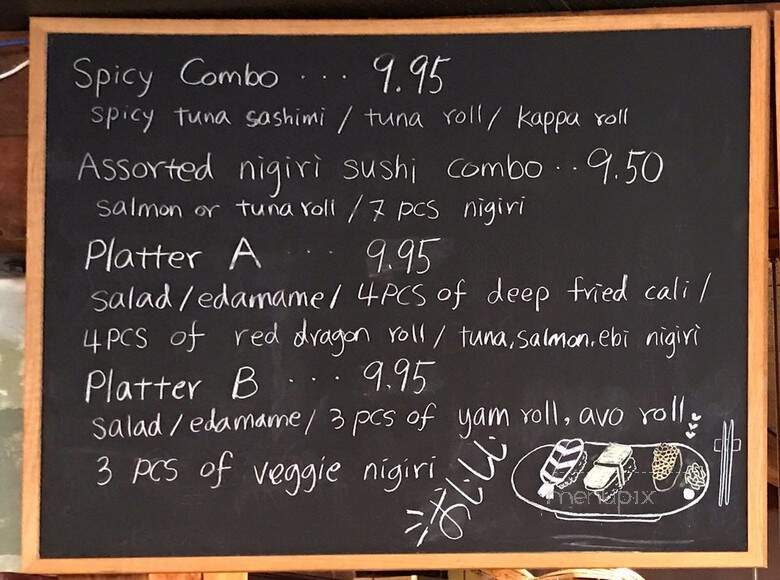 Spicy Combo ... 9.95
spicy tuna sashimi / tuna roll / kappa roll
Assorted nigiri sushi combo .. 9.50
salmon or tuna roll / 7 pcs nigiri
Platter A ... 9.95
salad / edamame / 4 PCS of deep fried cali /
4 PCS of red dragon roll / tuna, salmon, ebi nigiri
Platter B ... 9.95
salad / edamame / 3 pcs of yam roll, avo roll,
3 PCS of veggie nigiri
おいしい
menupix